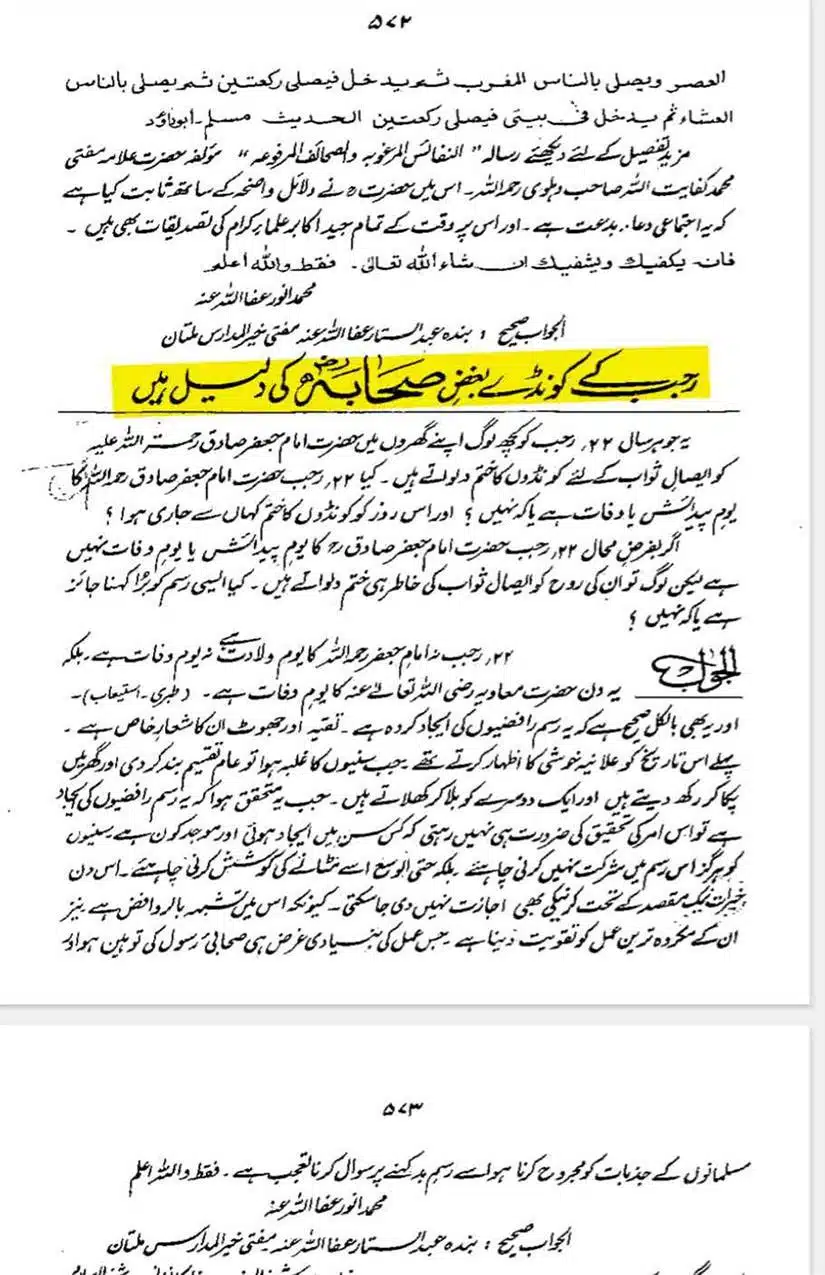 ۵۷۲
العصر ویصلی بالناس المغرب ثم یدخل فیصلی رکعتین ثم یصلی بالناس
العشاء ثم یدخل فی بیتی فیصلی رکعتین الحدیث مسلم۔ ابوداؤد
مزید تفصیل کے لئے دیکھئے رسالہ "النفائس المرغوبہ والصحائف المرفوعہ" مؤلفہ حضرت علامہ مفتی
محمد کفایت اللہ صاحب دہلوی رحمہ اللہ۔ اس میں حضرتؒ نے دلائل واضحہ کے ساتھ ثابت کیا ہے
کہ یہ اجتماعی دعاء بدعت ہے۔ اور اس پر وقت کے تمام جید اکابر علماء کرام کی تصدیقات بھی ہیں۔
فانہ یکفیك ویشفیك ان شاء اللہ تعالیٰ۔ فقط واللہ أعلم
محمد انور عفا اللہ عنہ
الجواب صحیح : بندہ عبد الستار عفا اللہ عنہ مفتی خیر المدارس ملتان
رجب کے کونڈے بغضِ صحابہؓ کی دلیل ہیں
یہ جو ہر سال ۲۲ رجب کو کچھ لوگ اپنے گھروں میں حضرت امام جعفر صادق رحمۃ اللہ علیہ
کو ایصالِ ثواب کے لئے کونڈوں کا ختم دلواتے ہیں۔ کیا ۲۲ رجب حضرت امام جعفر صادق رحمہ اللہ کا
یومِ پیدائش یا وفات ہے یا کہ نہیں ؟ اور اس روز کو کونڈوں کا ختم کہاں سے جاری ہوا ؟
اگر بفرضِ محال ۲۲ رجب حضرت امام جعفر صادقؒ کا یومِ پیدائش یا یومِ وفات نہیں
ہے لیکن لوگ تو ان کی روح کو ایصالِ ثواب کی خاطر ہی ختم دلواتے ہیں۔ کیا ایسی رسم کو بُرا کہنا جائز
ہے یا کہ نہیں ؟
الجواب ۲۲ رجب نہ امام جعفر رحمہ اللہ کا یوم ولادت ہے نہ یوم وفات ہے۔ بلکہ
یہ دن حضرت معاویہ رضی اللہ تعالیٰ عنہ کا یوم وفات ہے۔ (طبری۔ استیعاب)۔
اور یہ بھی بالکل صحیح ہے کہ یہ رسم رافضیوں کی ایجاد کردہ ہے۔ تقیہ اور جھوٹ ان کا شعارِ خاص ہے۔
پہلے اس تاریخ کو علانیہ خوشی کا اظہار کرتے تھے۔ جب سنیوں کا غلبہ ہوا تو عام تقسیم بند کر دی اور گھر میں
پکا کر رکھ دیتے ہیں اور ایک دوسرے کو بلا کر کھلاتے ہیں۔ جب یہ متحقق ہوا کہ یہ رسم رافضیوں کی ایجاد
ہے تو اس امر کی تحقیق کی ضرورت ہی نہیں رہتی کہ کس سن میں ایجاد ہوئی اور موجد کون ہے۔ سنیوں
کو ہرگز اس رسم میں شرکت نہیں کرنی چاہئے۔ بلکہ حتی الوسع اسے مٹانے کی کوشش کرنی چاہئے۔ اس دن
خیرات نیک مقصد کے تحت کرنیکی بھی اجازت نہیں دی جاسکتی۔ کیونکہ اس میں تشبہ بالروافض ہے نیز
ان کے مکروہ ترین عمل کو تقویت دینا ہے۔ جس عمل کی بنیادی غرض ہی صحابیٔ رسول کی توہین ہو اور
۵۷۳
مسلمانوں کے جذبات کو مجروح کرنا ہو اسے رسم بد کہنے پر سوال کرنا تعجب ہے۔ فقط واللہ اعلم
محمد انور عفا اللہ عنہ
الجواب صحیح : بندہ عبد الستار عفا اللہ عنہ مفتی خیر المدارس ملتان